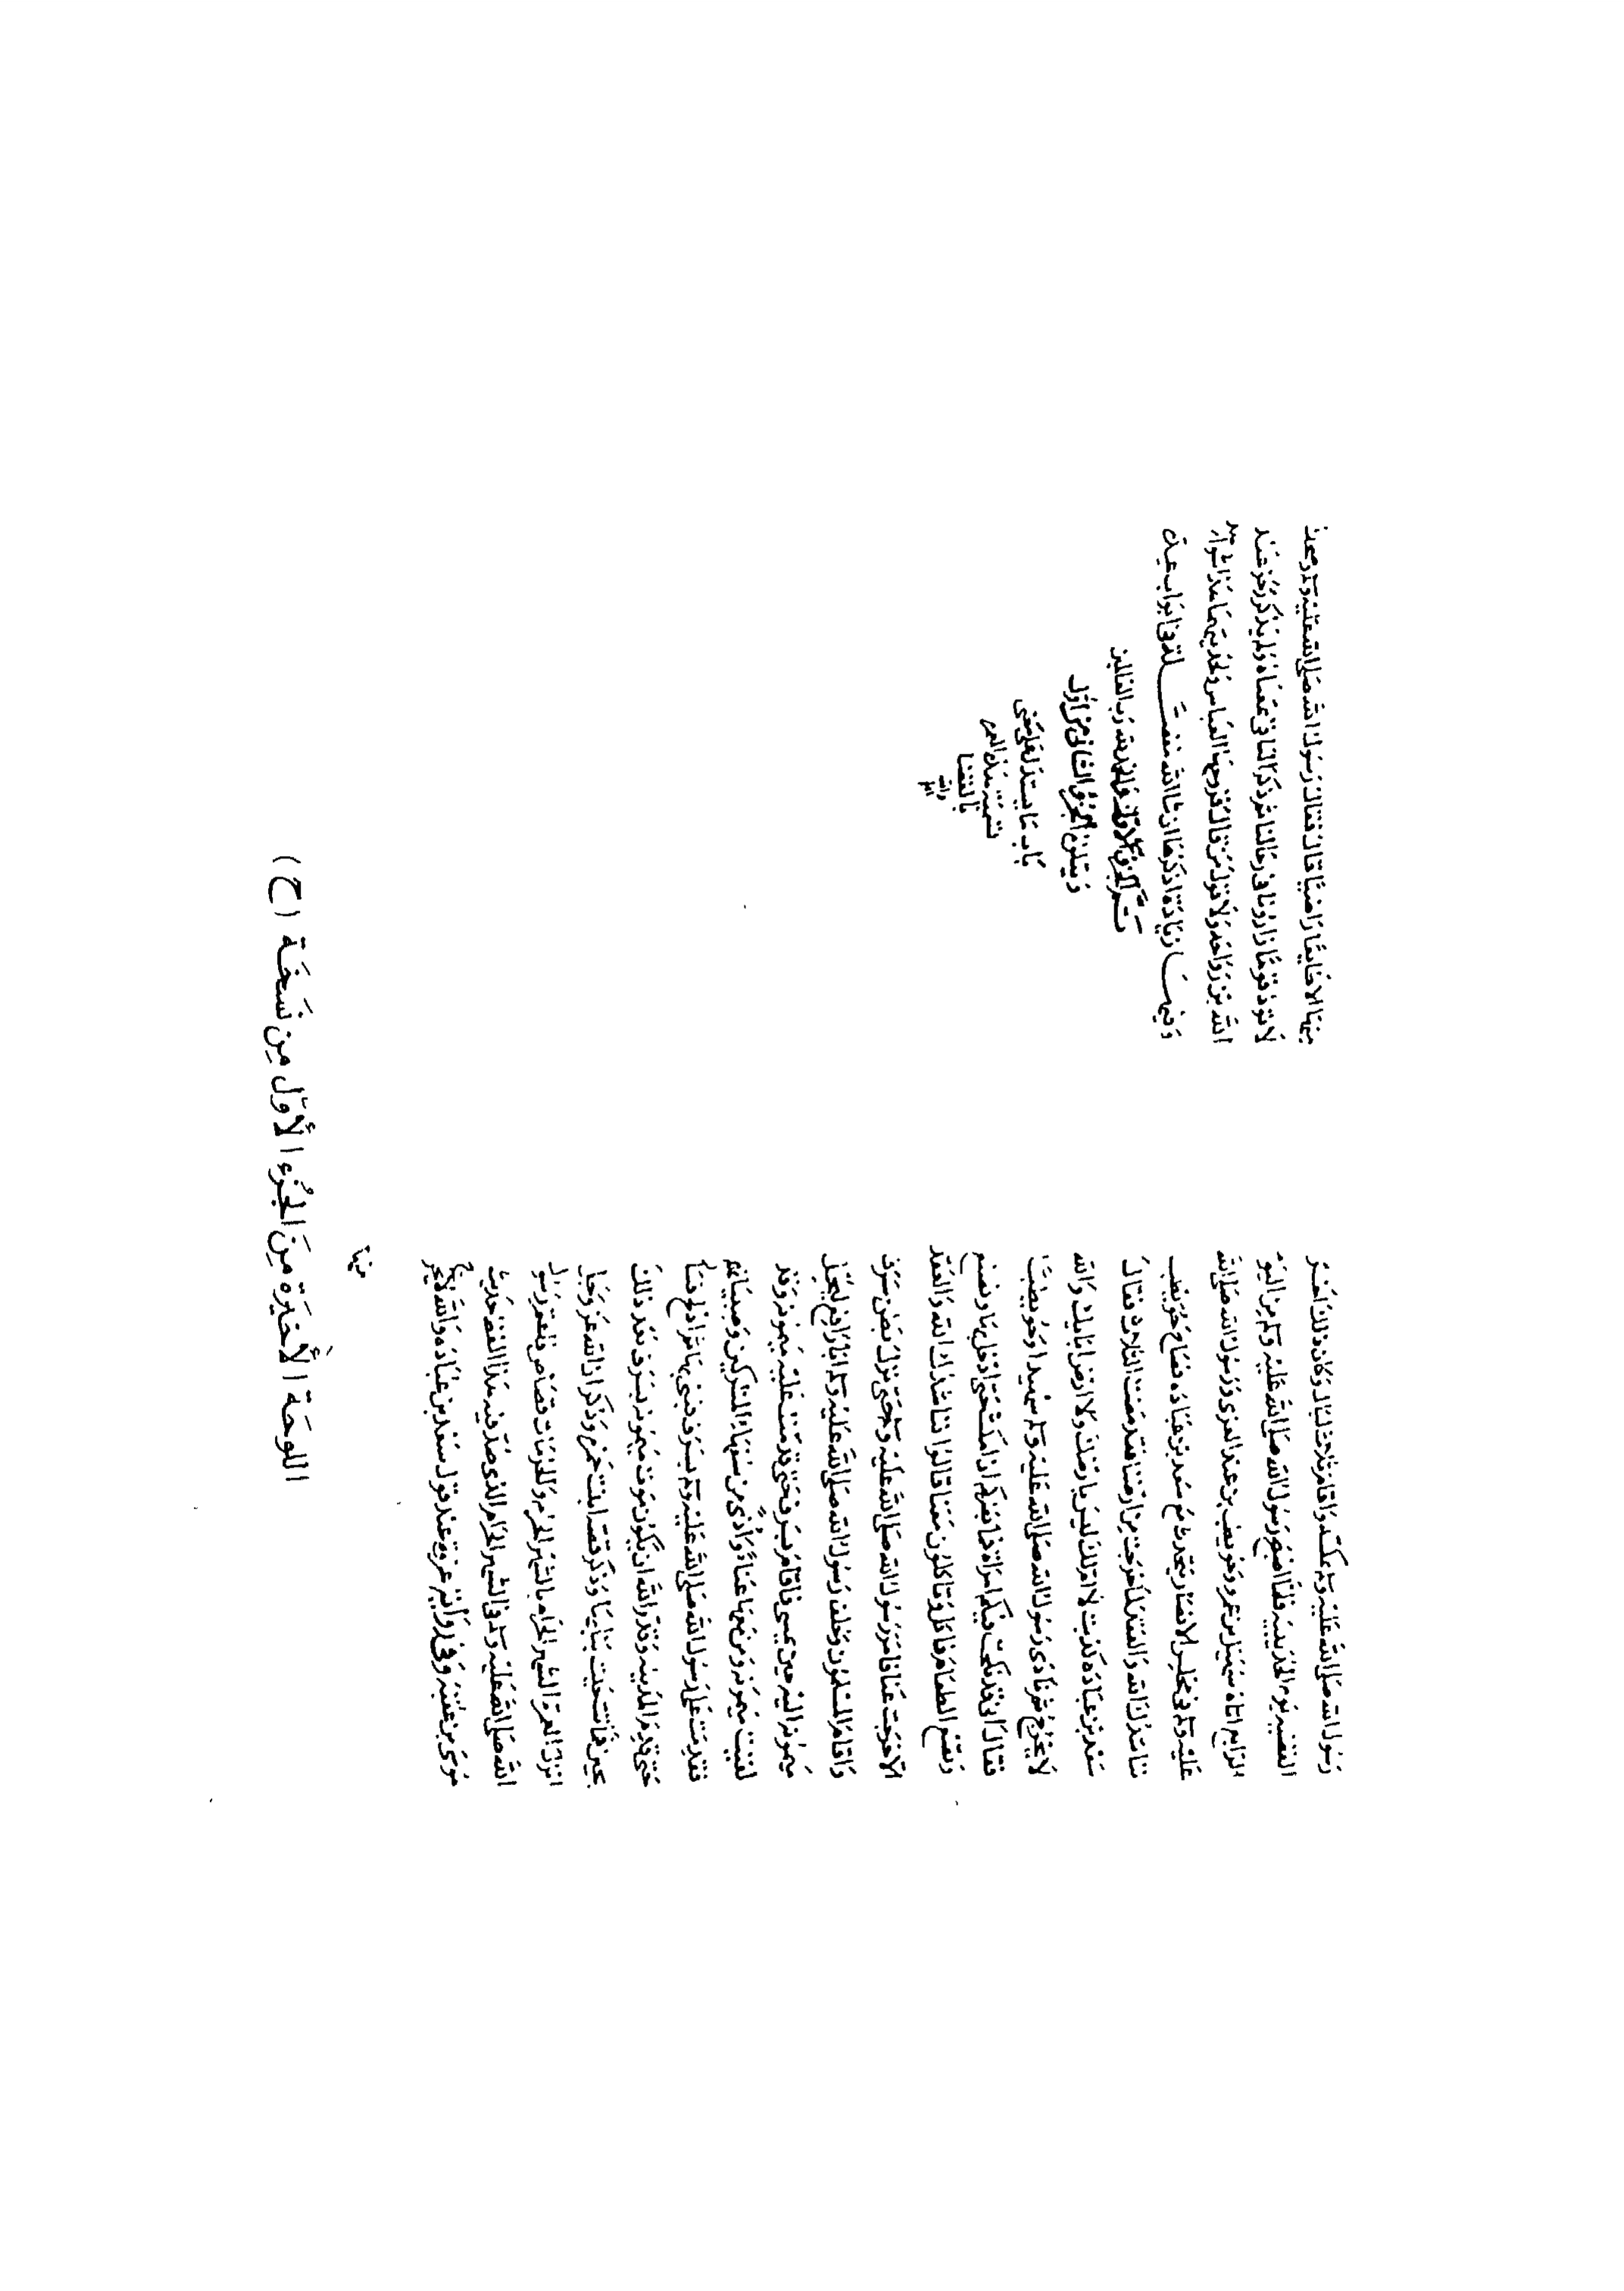 رسول الله صلى الله عليه وسلم بمكة واقام ثلاث ليال وكان ذلك اخر
القضيه يوم الحديبيه فلما اصبح رسول الله صلى الله عليه وسلم من اليوم
الرابع اتاه سهيل بن عمرو وحويطب بن عبد العزى ورسول الله صلى الله
عليه وسلم في مجلس الانصار يتحدث مع سعد بن عباده فصاح حويطب
نناشدك الله والعقد لما خرجت من ارضنا فقد مضت الثلاث فقال
سعد بن عباده كذبت لا ام لك ليس بارضك ولا ارض ابايك والله
لا يخرج ثم نادى رسول الله صلى الله عليه وسلم سهيلا وحويطبا
فقال اني قد نكحت فيكم امراة فما يضركم ان امكث حتى ادخل بها ونصنع
ونضع الطعام فناكل وتاكلون معنا قالوا نناشدك الله والعقد
الا خرجت عنا فامر رسول الله صلى الله عليه وسلم حتى نزل بطن سرف
واقام المسلمون وخلف رسول الله صلى الله عليه وسلم ابا رافع ليحمل
ميمونه اليه حين يمسي فاقام بسرف حتى قدمت عليه ميمونه وقد
لقيت ميمونه ومن معها عناء واذى من سفهاء المشركين وصبيانهم
فقدمت على رسول الله صلى الله عليه وسلم بسرف فبنى بها ثم ادلج فسار
حتى قدم المدينه وقدر الله ان يكون موت ميمونه بسرف بعد ذلك
بحين فماتت حيث بنا بها وذكر قصه ابنت حمزه وذكر ان الله عز وجل
انزل العمره الشهر الحرام بالشهر الحرام والحرمات قصاص فاعتمر رسول
الله صلى الله عليه وسلم في الشهر الحرام الذي صد فيه هذا لفظ حديث
موسى بن عقبه وفي رواية عروة عند قول سعد بن عباده والله لا يخرج
منها
منها الا طايعا راضيا قال فقال رسول الله صلى الله عليه وسلم وضحك
لا تؤذ قوما زارونا في رحالنا ثم ذكر الباقي بمعناه ولم يذكر رجز عبد
الله بن رواحه ولا قوله ثم قال فزوجها العباس ولحديثهما هذا شواهد
وفيهـا زيادة اذكرها ان شا الله منفصـلة في ابواب عمرة
تـم الجزو الاول والحمد لله رب العالمين
ويتلوه في الجزو الثاني من اول
باب ما يستدل به على معنى
تسميته هذه العمره
بالقضا
والله
اعلم
اللوحَة الأخيَرة مِنَ الجُزء الأوّل مِن نسُخَة (ح)